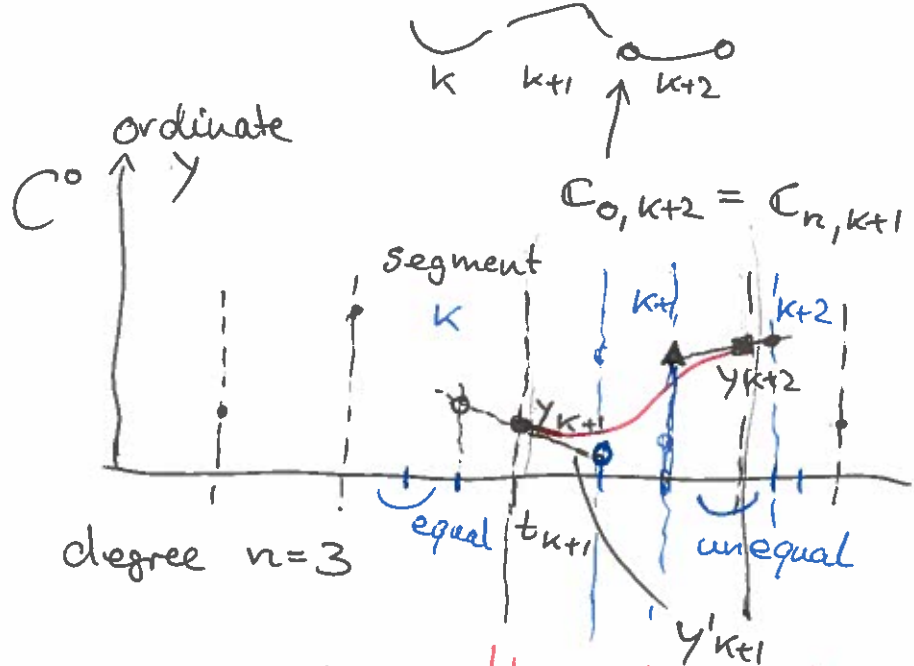 k k+1 k+2
ordinate
y
C°
C0,k+2 = Cn,k+1
segment
k k+1 k+2
yk+1 yk+2
equal tk+1 unequal
degree n=3
y'k+1